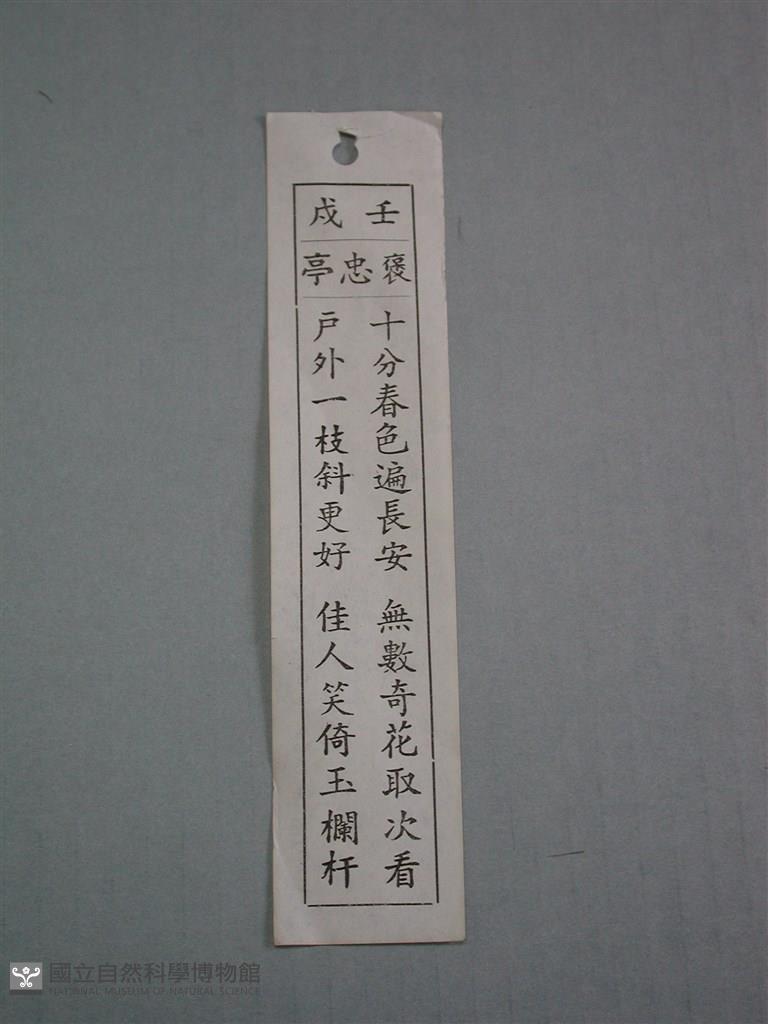 壬戌
褒忠亭
十分春色遍長安 無數奇花取次看
戶外一枝斜更好 佳人笑倚玉欄杆
國立自然科學博物館
NATIONAL MUSEUM OF NATURAL SCIENCE